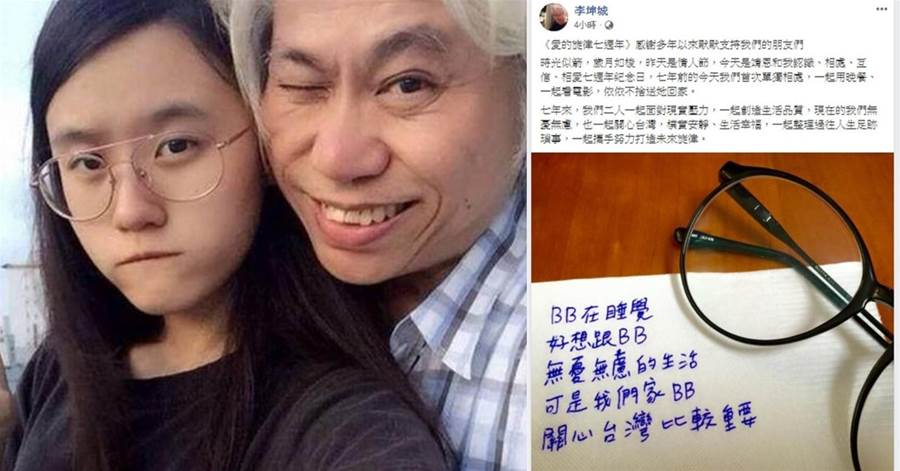 李坤城
4小時·
《愛的旋律七週年》感謝多年以來默默支持我們的朋友們
時光似箭，歲月如梭，昨天是情人節，今天是靖恩和我認識、相處、互
信、相愛七週年紀念日，七年前的今天我們首次單獨相處，一起用晚餐、
一起看電影，依依不捨送她回家。
七年來，我們二人一起面對現實壓力，一起創造生活品質，現在的我們無
憂無慮，也一起關心台灣，橫賞安靜、生活幸福，一起整理過往人生足跡
瑣事，一起攜手努力打造未來旋律。
BB在睡覺
好想跟BB
無憂無慮的生活
可是我們家BB
關心台灣比較重要